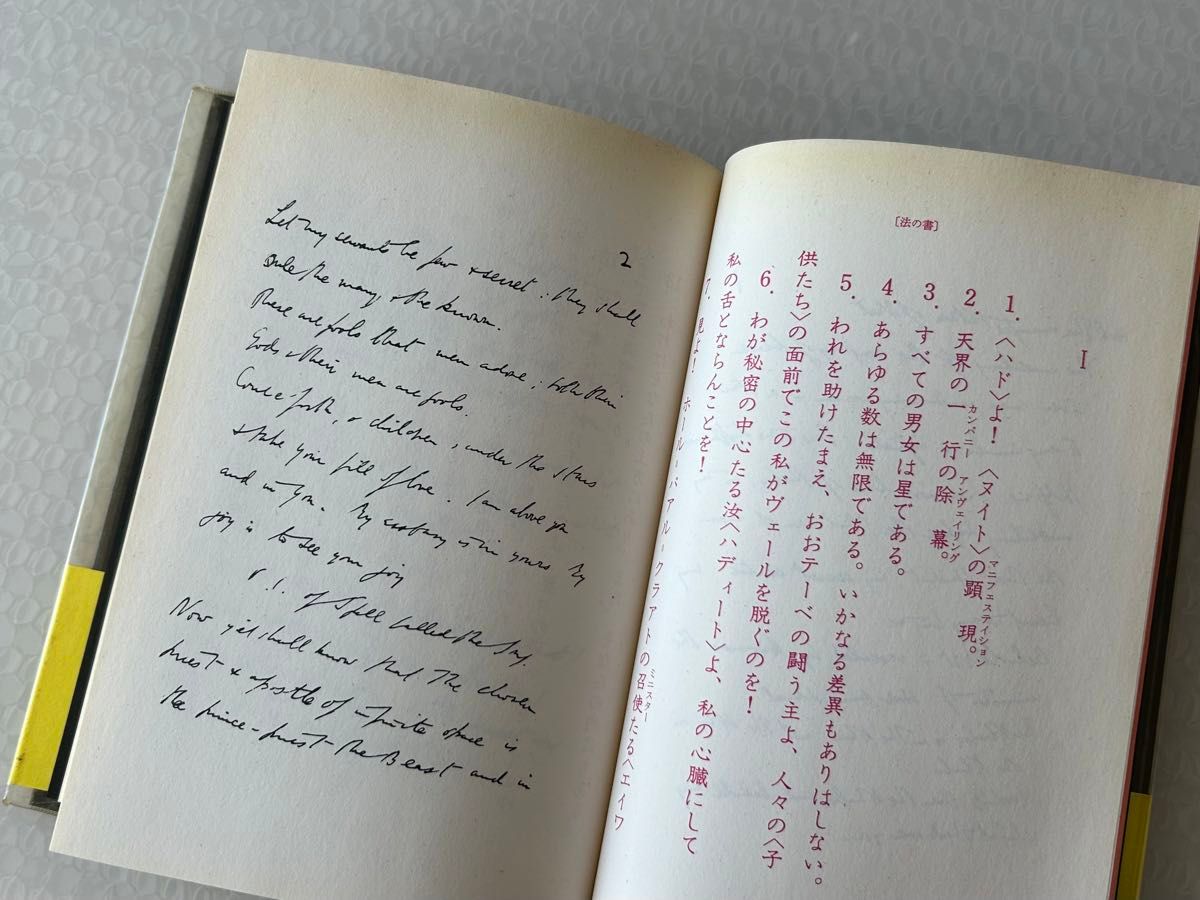 2
Let my servants be few & secret : they shall
rule the many & the known.
These are fools that men adore ; both their
Gods & their men are fools.
Come forth, o children, under the stars
& take your fill of love. I am above you
and in you. My ecstasy is in yours My
joy is to see your joy
v.1. of Spell called the Song.
Now ye shall know that the chosen
priest & apostle of infinite space is
the prince-priest the Beast and in
[法の書]
I
1. 〈ハド〉よ! 〈ヌイト〉の顕現。
マニフェステイション
2. 天界の一行の除幕。
カンパニー アンヴェイリング
3. すべての男女は星である。
4. あらゆる数は無限である。いかなる差異もありはしない。
5. われを助けたまえ、おおテーベの闘う主よ、人々の〈子
供たち〉の面前でこの私がヴェールを脱ぐのを!
6. わが秘密の中心たる汝〈ハディート〉よ、私の心臓にして
私の舌とならんことを!
7. 見よ! ホール=パアル=クラアトの召使たる〈エイワ
ミニスター